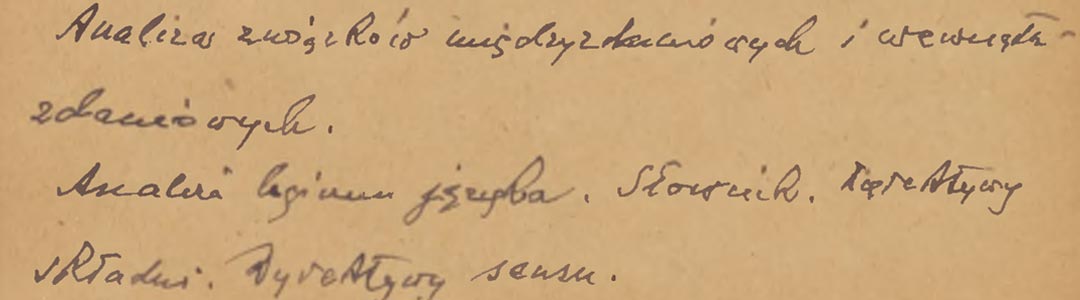 Analiza związków międzyzdaniowych i wewnątrz-
zdaniowych.
Analiza języka. Słownik. Dyrektywy
składni. Dyrektywy sensu.